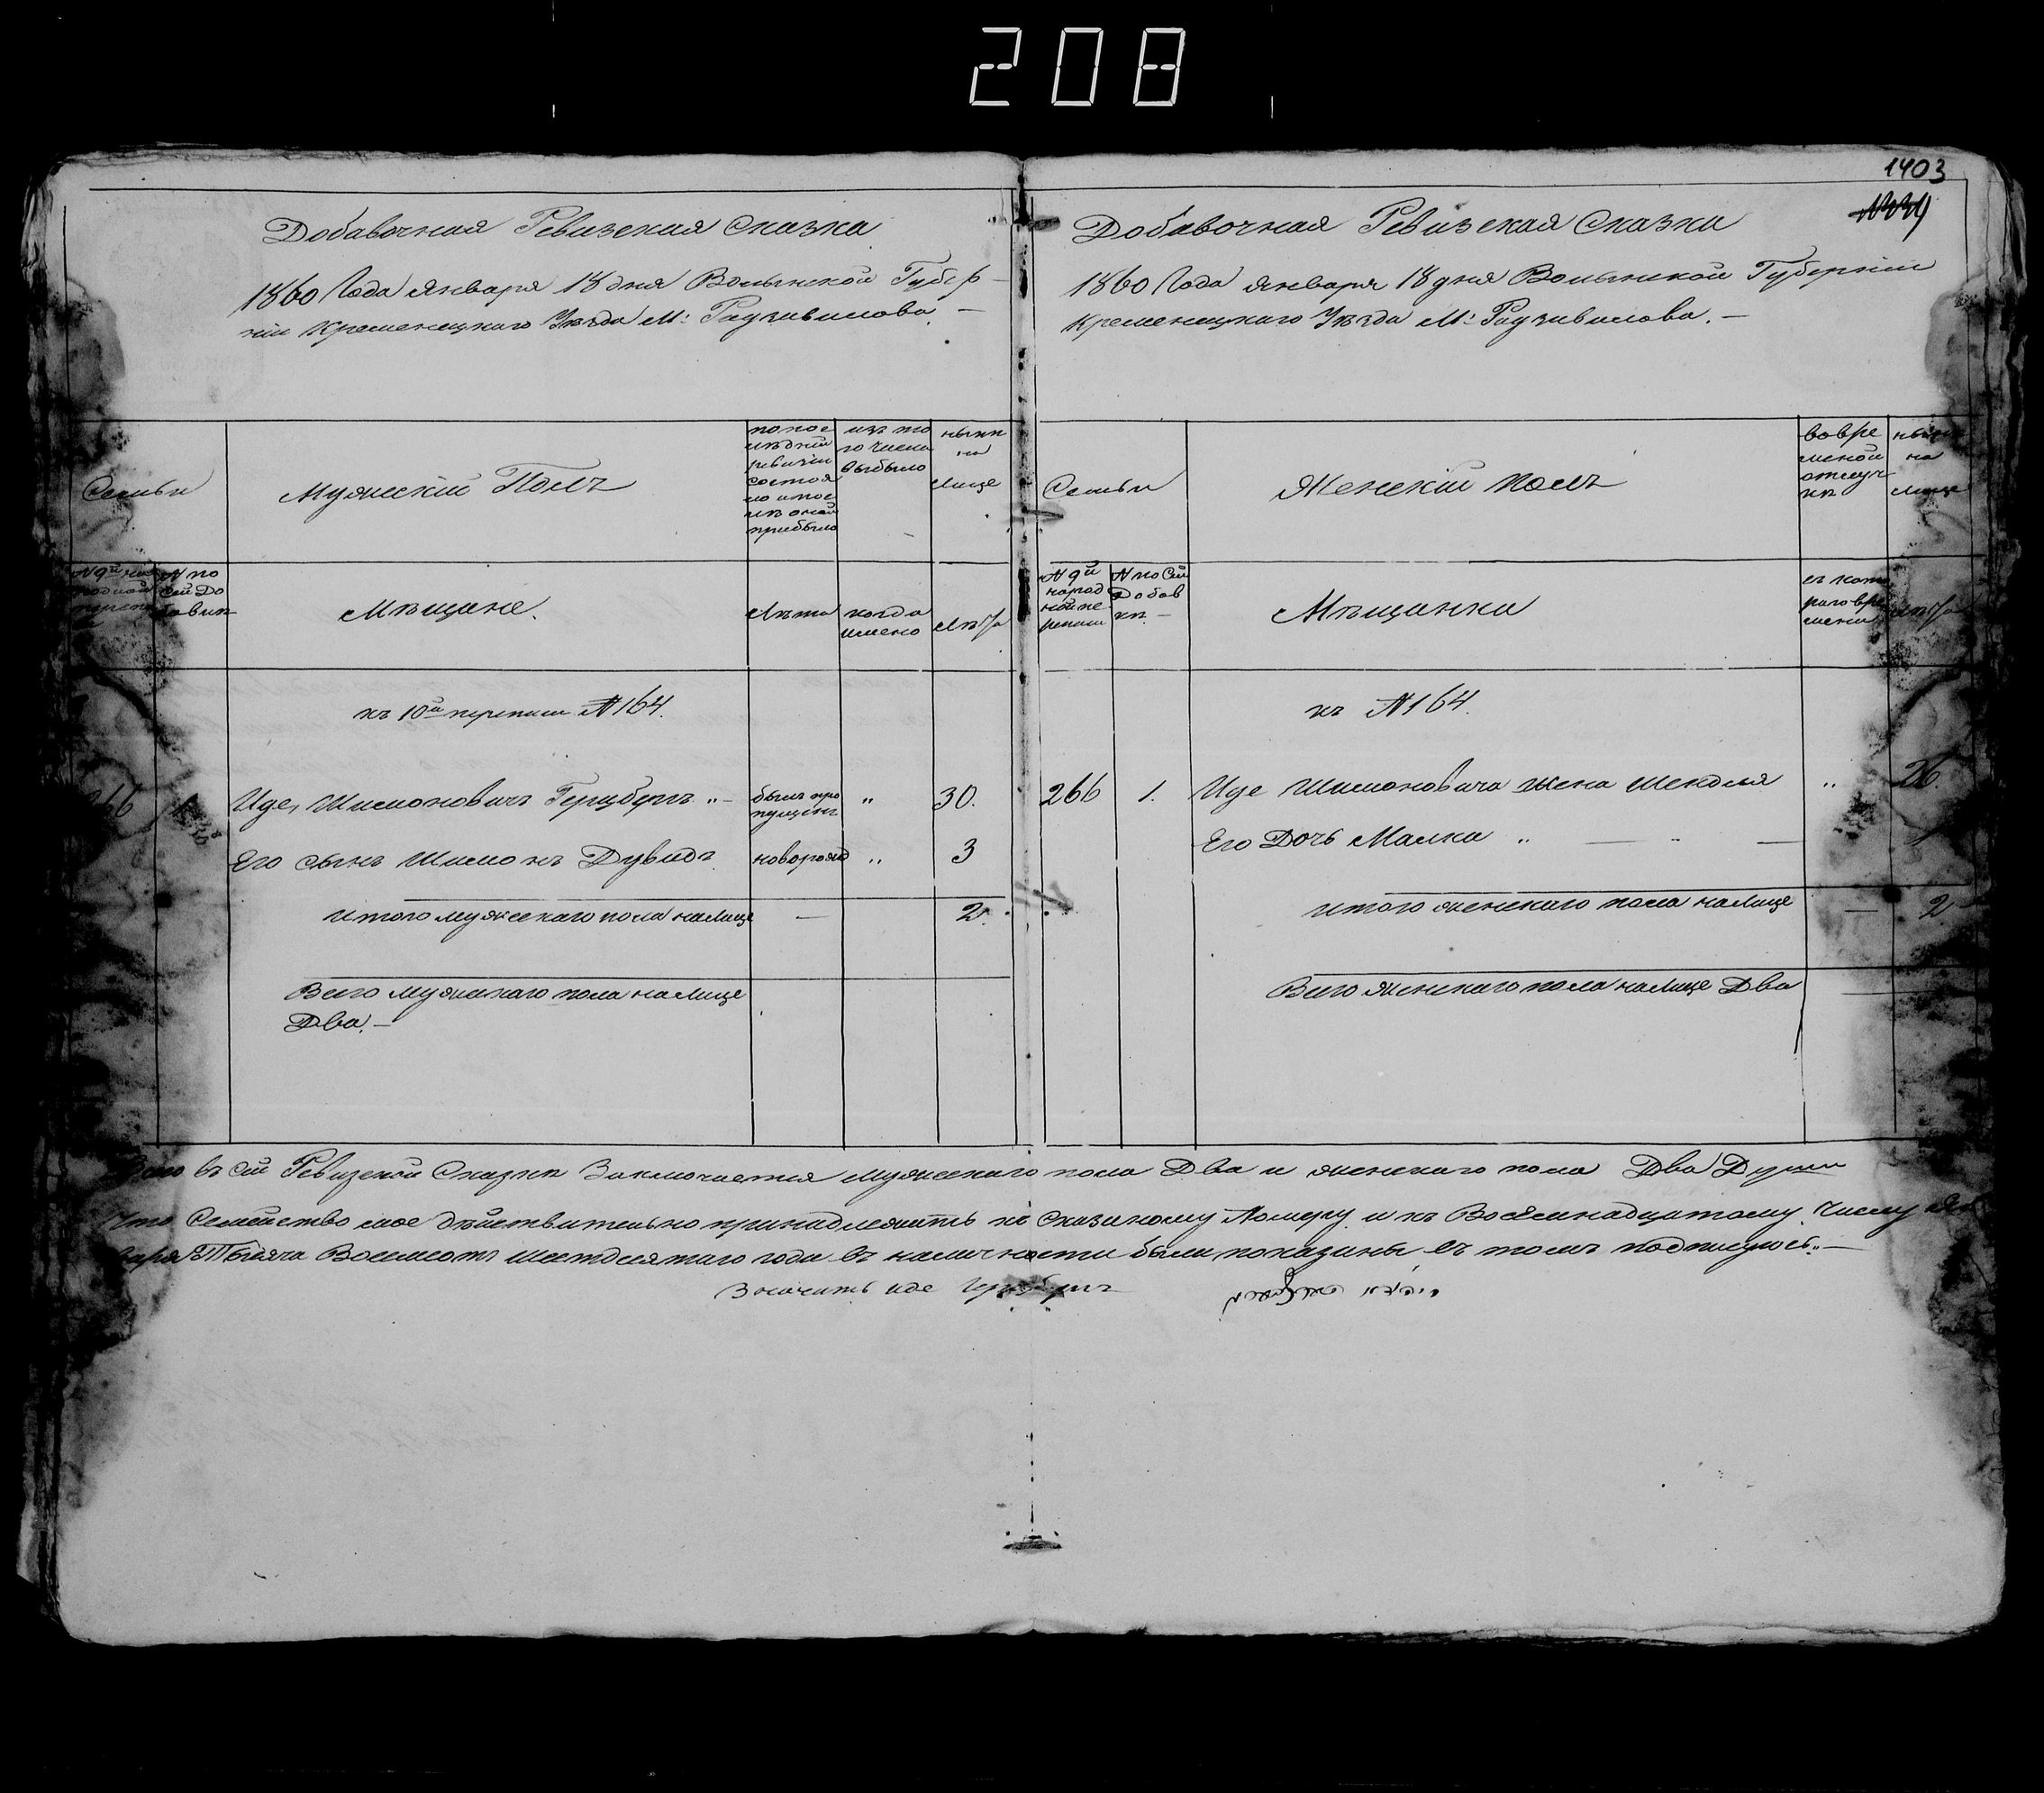 208
1403
Добавочная Ревизская Сказка
1860 Года Января 18 дня Волынской Губер-
нии Кременецкаго Уѣзда М: Радзивилова. —
Семьи
Мужескій Полъ
по пос
лѣдній
ревизіи
состоя
ло и пос
лѣ оной
прибыло
изъ то
го числа
выбыло
нынѣ
на
лице
№ по
сей До
бавкѣ
Мѣщане.
Лѣта
когда
имено
Лѣта
къ 10й переписи №164.
266 1
Иде, Шимоновичъ Герцбергъ „ —
былъ про
пущенъ
„
30.
Его сынъ Шимонъ Дувидъ
новорожд
„
3
Итого мужескаго пола налице
—
2.
Всего мужескаго пола налице
Два. —
Добавочная Ревизская Сказка
1860 Года Января 18 дня Волынской Губерніи
Кременецкаго Уѣзда М: Радзивилова. —
Семьи
Женскій полъ
во вре
меной
отлуч
кѣ
нынѣ
на
лице
№ 9й
народ
ной пе
реписи
№ по Сей
Добав
кѣ. —
Мѣщанки
съ кото
раго вре
мени
лѣта
къ №164.
266 1. Иде Шимоновича жена Шендля „ 26.
Его Дочь Малка „ — „ — 1
Итого женскаго пола налице — 2
Всего женскаго пола налице Два
Всего въ сей Ревизской Сказкѣ Заключается мужескаго пола Два и женскаго пола Два Души
Что Семейство мое действительно принадлежитъ къ сказаному Номеру и къ Восемнадцатому Числу Ян
варя Тысяча Восемсотъ шестдесятаго года въ наличности были показаны въ томъ подписуюсь. —
Значитъ Иде Герцбергъ